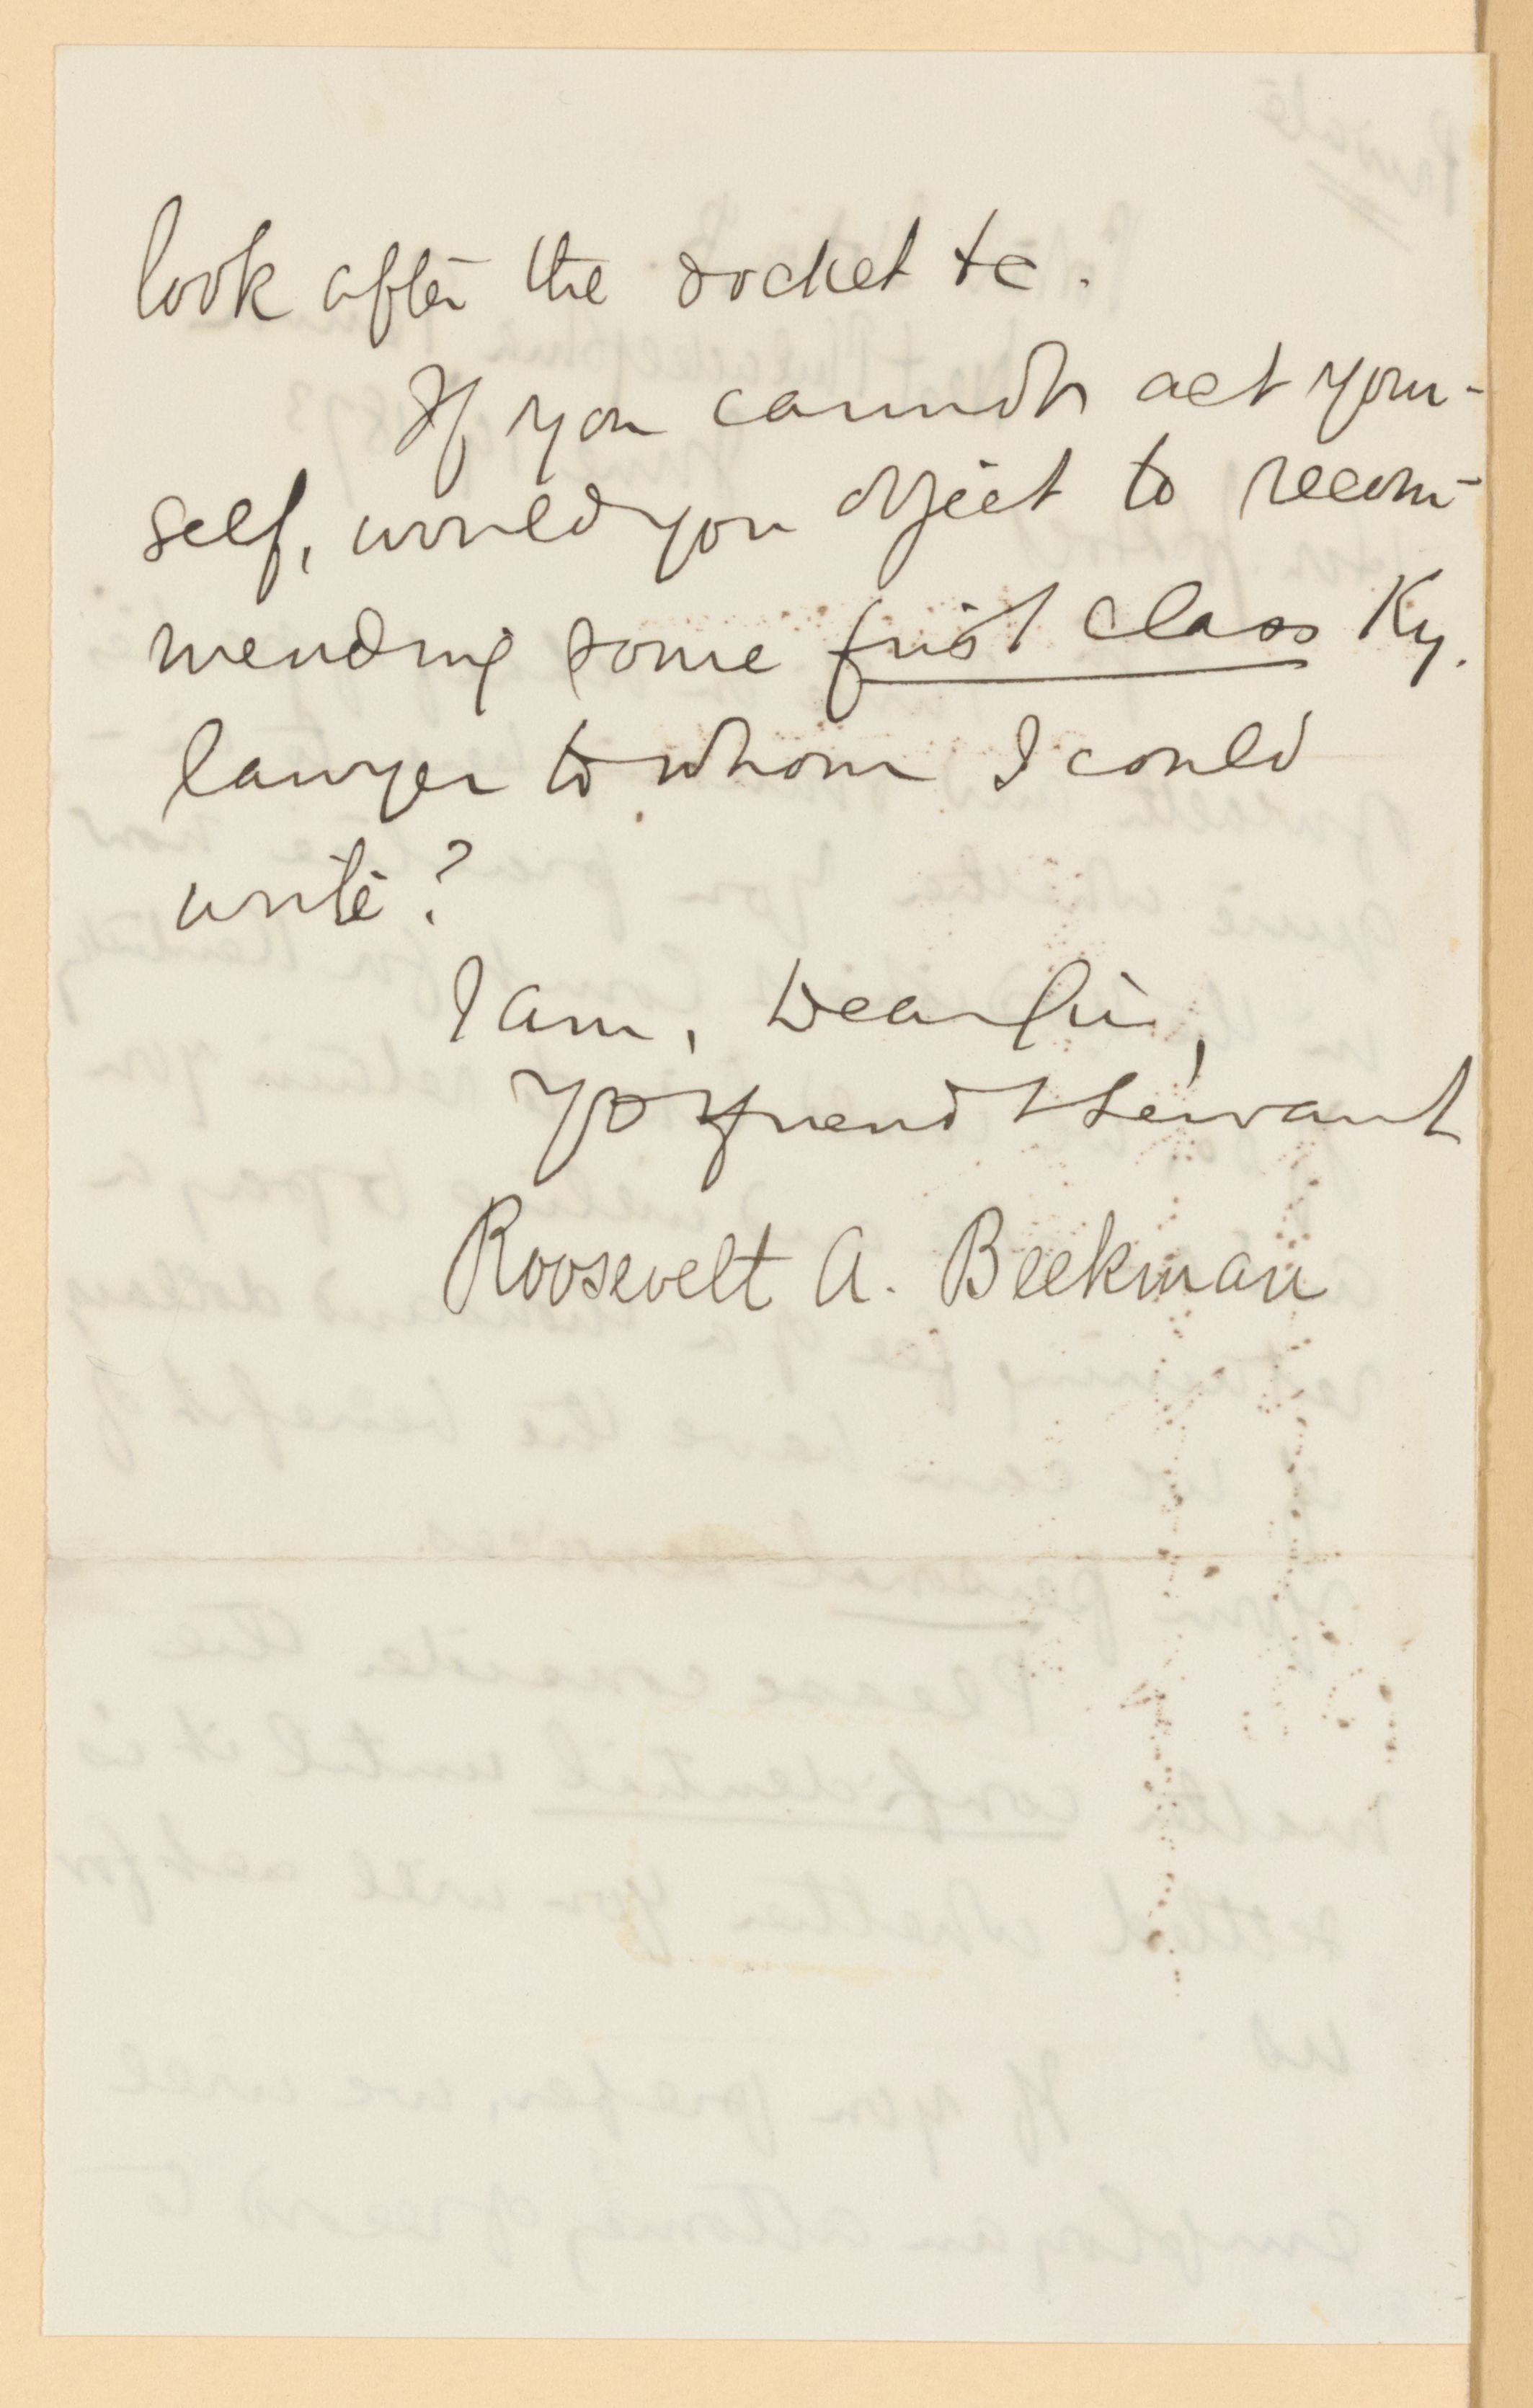 look after the docket &c.
If you cannot act your-
self, would you object to recom-
mending some first class Ky.
lawyer to whom I could
write?
I am, Dear Sir,
Yr friend & servant
Roosevelt A. Beekman